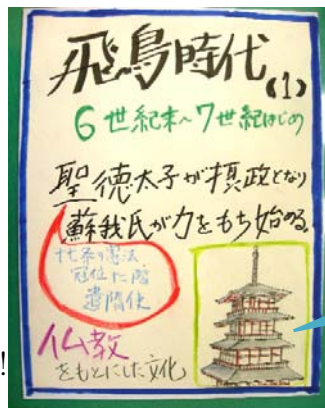 飛鳥時代(1)
6世紀末~7世紀はじめ
聖徳太子が摂政となり
蘇我氏が力をもち始める。
十七条の憲法
冠位十二階
遣隋使
仏教
をもとにした文化
!